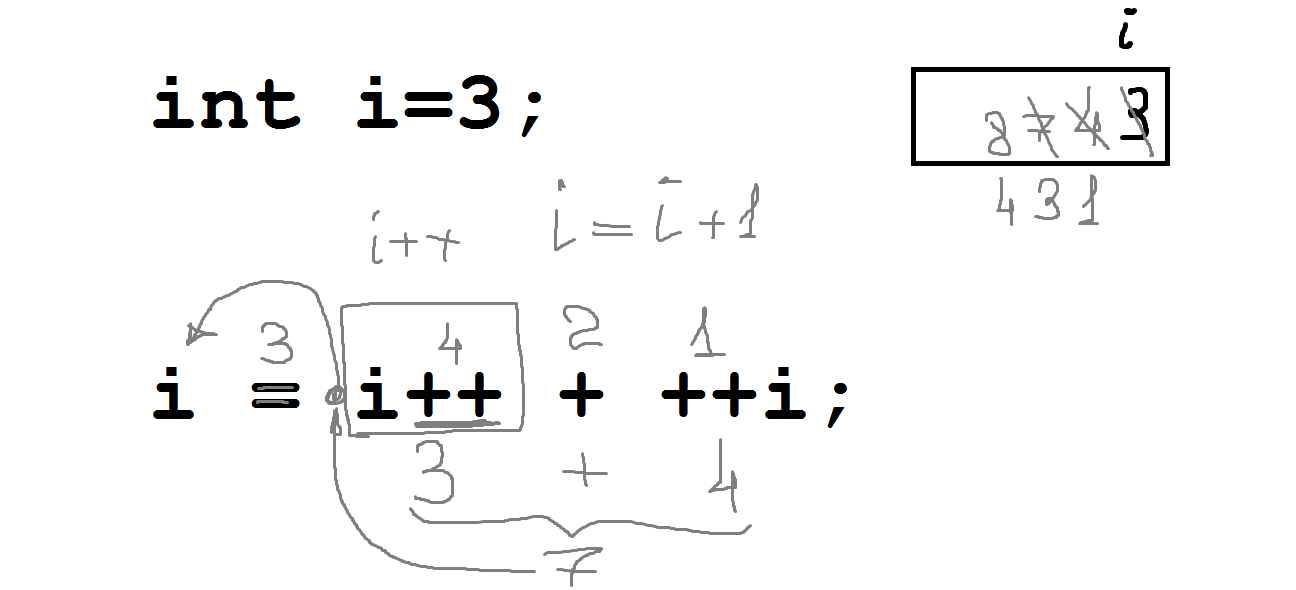 i
int i=3;
8 7 4 3
4 3 1
i++ i=i+1
3 4 2 1
i = i++ + ++i;
3 + 4
7